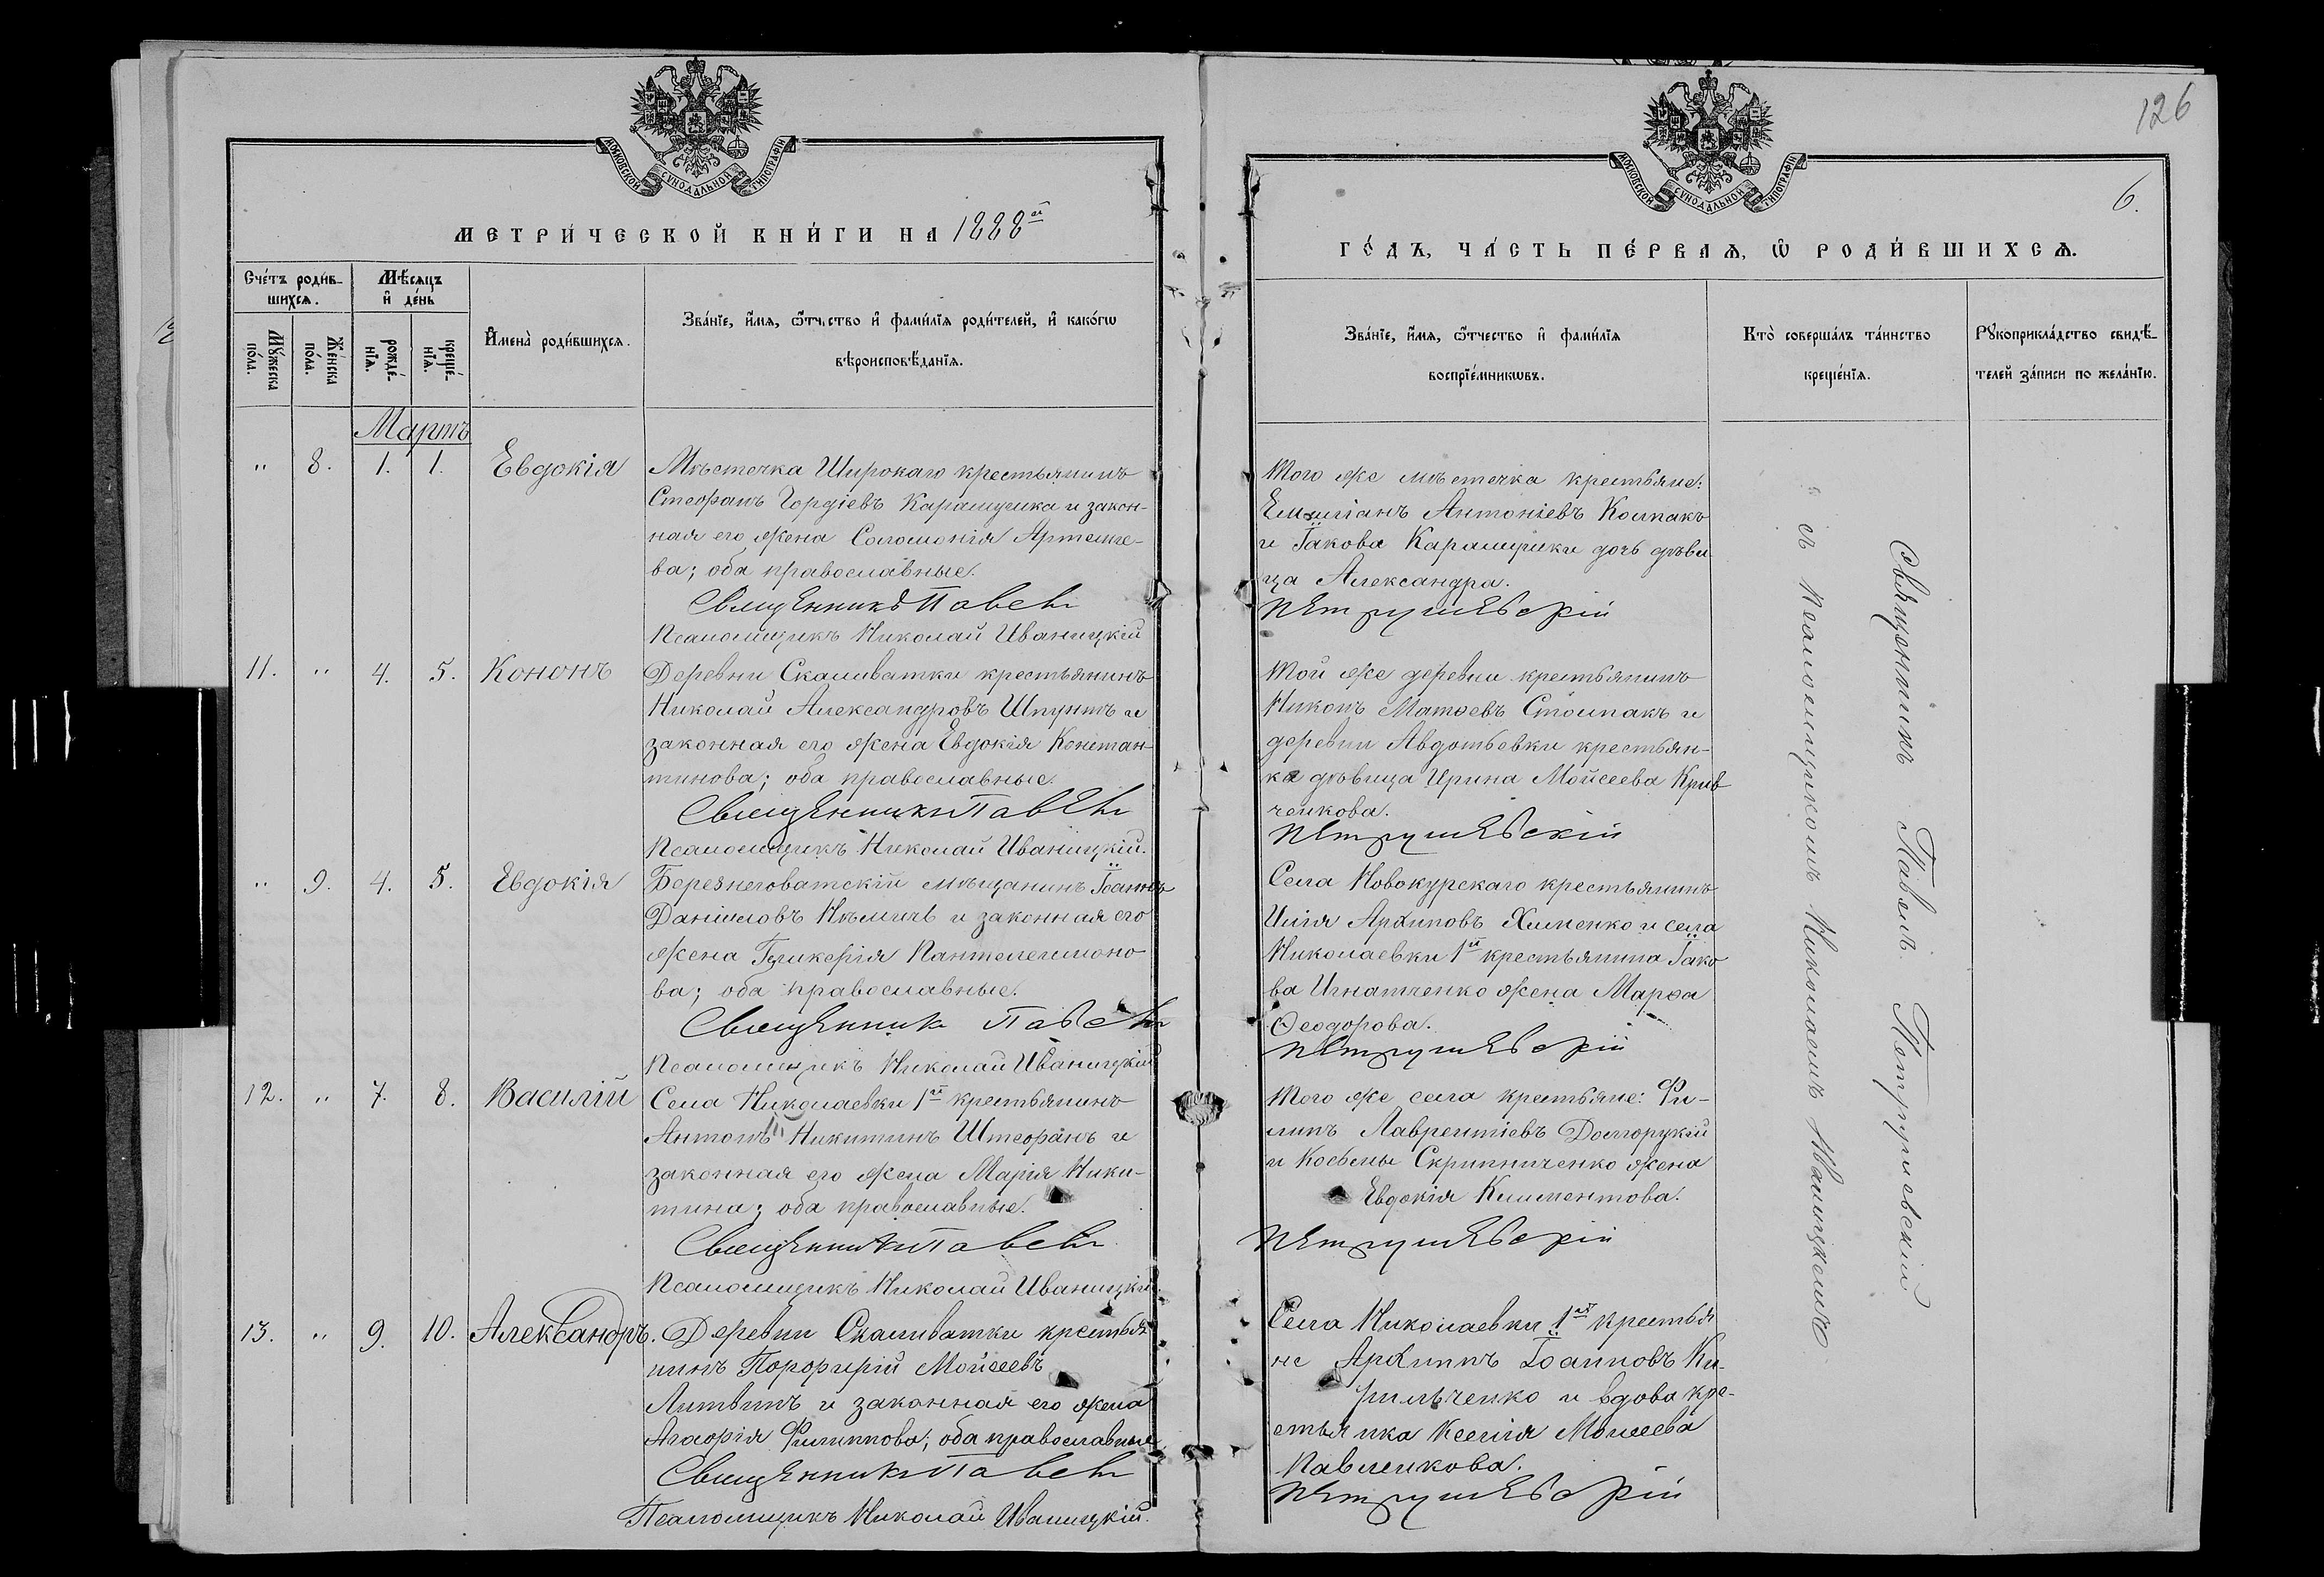 126
6.
МОСКОВСКОЙ СѴНОДАЛЬНОЙ ТИПОГРАФІИ
МОСКОВСКОЙ СѴНОДАЛЬНОЙ ТИПОГРАФІИ
МЕТРИ́ЧЕСКОЙ КНИ́ГИ НА 1888й
ГО́ДЪ, ЧА́СТЬ ПЕ́РВАѦ, Ѡ҆ РОДИ́ВШИХСѦ.
Сче́тъ роди́в-
шихсѧ.
Мꙋ́жеска по́ла.
Же́нска по́ла.
Мѣ́сѧцъ
и҆ де́нь
рожде́-
нїѧ.
креще́-
нїѧ.
И҆мена̀ роди́вшихсѧ.
Зва́нїе, и҆́мѧ, ѻ҆́тчество и҆ фами́лїѧ роди́телей, и҆ како́гѡ
вѣроисповѣ́данїѧ.
Зва́нїе, и҆́мѧ, ѻ҆́тчество и҆ фами́лїѧ
воспрїе́мникѡвъ.
Кто̀ соверша́лъ та́инство
креще́нїѧ.
Рꙋкоприкла́дство свидѣ́-
телей за́писи по жела́нїю.
Мартъ
" 8. 1. 1. Евдокія
Мѣстечка Широкаго крестьянинъ
Стефанъ Гордіевъ Карамушка и закон-
ная его жена Соломонія Артеміе-
ва; оба православные.
Священникъ Павелъ
Псаломщикъ Николай Иваницкій
Того же мѣстечка крестьяне:
Емиліанъ Антоніевъ Колпакъ
и Іакова Карамушки дочь дѣви
ца Александра.
Петрушевскій
11. " 4. 5. Кононъ
Деревни Скаливатки крестьянинъ
Николай Александровъ Шпунтъ и
законная его жена Евдокія Констан
тинова; оба православные.
Священникъ Павелъ
Псаломщикъ Николай Иваницкій.
Той же деревни крестьянинъ
Никонъ Матѳеевъ Столпакъ и
деревни Авдотьевки крестьян-
ка дѣвица Ирина Мойсеева Крив
ченкова.
Петрушевскій
" 9. 4. 5. Евдокія
Березнеговатскій мѣщанинъ Іоаннъ
Даніиловъ Нѣмичъ и законная его
жена Гликерія Пантелеимоно
ва; оба православные.
Священникъ Павелъ
Псаломщикъ Николай Иваницкій
Села Новокурскаго крестьянинъ
Илія Архиповъ Хименко и села
Николаевки 1й крестьянина Іако
ва Игнатченко жена Марѳа
Ѳеодорова.
Петрушевскій
12. " 7. 8. Василій
Села Николаевки 1й крестьянинъ
Антонъ Никитинъ Штефанъ и
законная его жена Марія Ники-
тина; оба православные.
Священникъ Павелъ
Псаломщикъ Николай Иваницкій.
Того же села крестьяне: Фи-
липъ Лаврентіевъ Долгорукій
и Косьмы Скрипниченко жена
Евдокія Климентова.
Петрушевскій
13. " 9. 10. Александръ.
Деревни Скаливатки крестья
нинъ Порфирій Мойсеевъ
Литвинъ и законная его жена
Агафія Филиппова; оба православные
Священникъ Павелъ
Псаломщикъ Николай Иваницкій.
Села Николаевки 1й крестья
не Архиппъ Іоанновъ Ки-
рильченко и вдова кре-
стьянка Ксенія Моисеева
Павленкова.
Петрушевскій
Священникъ Павелъ Петрушевскій
съ псаломщикомъ Николаемъ Иваницкимъ